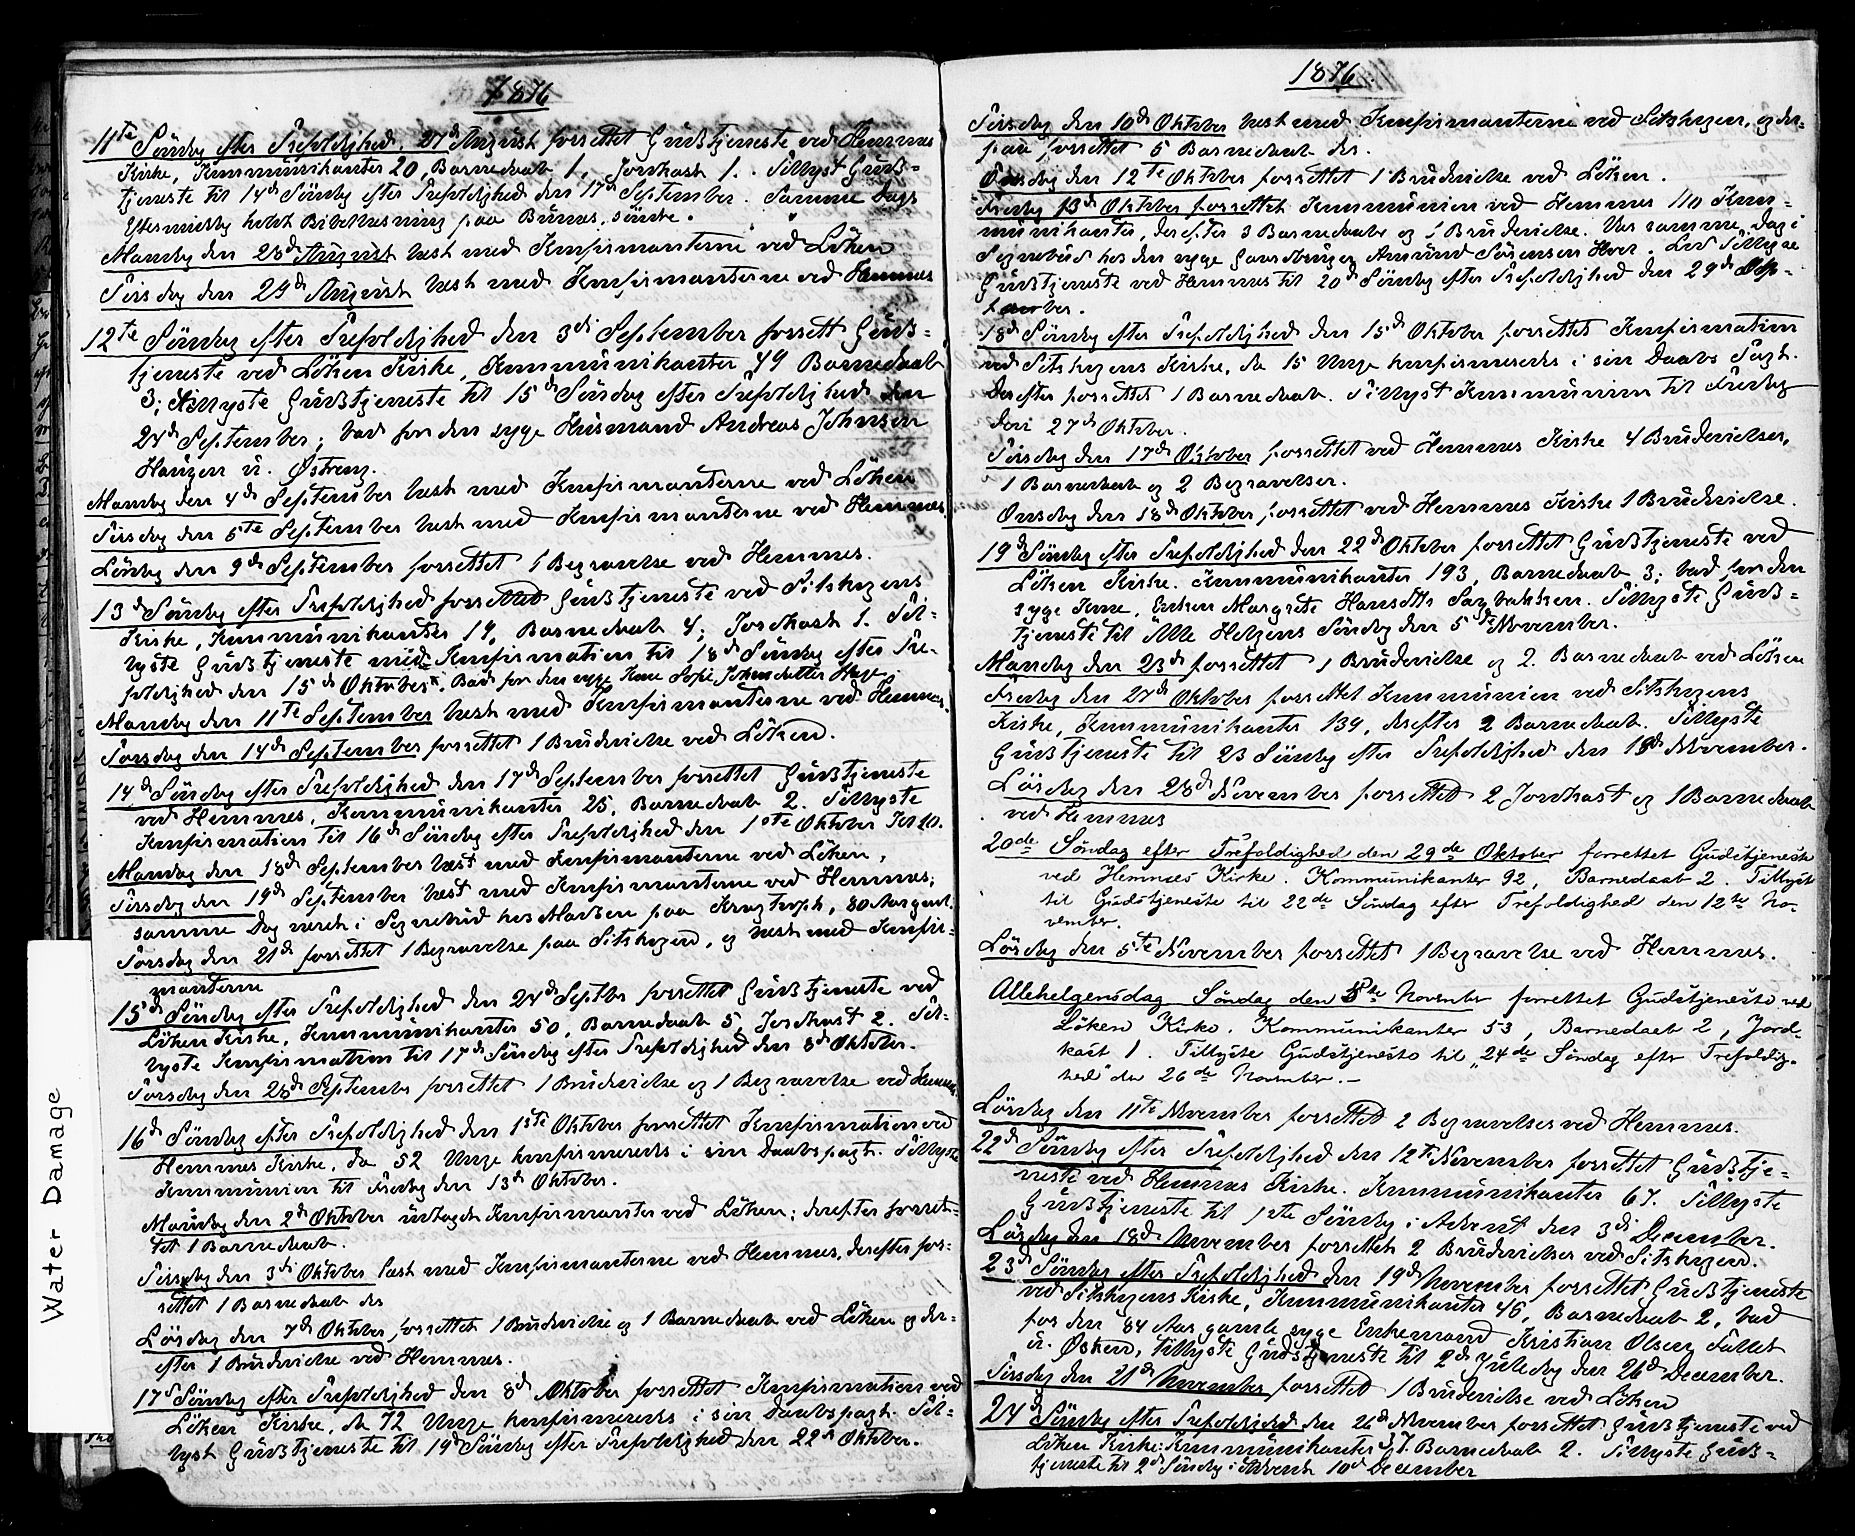 1876
11te Söndag efter Trefoldighed, 27de August forrettet Gudstjeneste ved Hemnes
Kirke, Kommunikanter 20, Barnedaab 1, Jordkast 1. Tillyst Guds-
tjeneste til 14de Söndag efter Trefoldighed den 17de September. Samme Dags
Eftermiddag holdt Bibellæsning paa Bunes, söndre.
Mandag den 28de August læst med Konfirmanterne ved Löken
Tirsdag den 29de August læst med Konfirmanterne ved Hemnes
12te Söndag efter Trefoldighed den 3die September forrett Guds-
tjeneste ved Löken Kirke, Kommunikanter 49 Barnedaab
3; tillyste Gudstjeneste til 15de Söndag efter Trefoldighed den
24de September; bad for den syge Husmand Andreas Johnsen
Haugen u. Østreng.
Mandag den 4de September læst med Konfirmanterne ved Löken
Tirsdag den 5te September læst med Konfirmanterne ved Hemnes
Lördag den 9de September forrettet 1 Begravelse ved Hemmes.
13de Söndag efter Trefoldighed forrettet Gudstjeneste ved Sitskogens
Kirke, Kommunikanter 14, Barnedaab 4; Jordkast 1. Til-
lyste Gudstjeneste med Konfirmation til 18de Söndag efter Tre-
foldighed den 15de Oktober. Bad for den syge Kone Sofie
Mandag den 11te September læst med Konfirmanterne ved Hemnes.
Torsdag den 14de September forrettet 1 Brudevielse ved Löken.
14de Söndag efter Trefoldighed den 17de September forrettet Gudstjeneste
ved Hemnes, Kommunikanter 25, Barnedaab 2. Tillyste
Konfirmation til 16de Söndag efter Trefoldighed den 1ste Oktober Kl 10.
Mandag den 18de September læst med Konfirmanterne ved Löken,
Tirsdag den 19de September læst med Konfirmanterne ved Hemnes;
samme Dag været i Sognebud hos Madsen paa 80 Aar gml.
Torsdag den 21de forrettet 1 Begravelse paa Sitskogen, og læst med Konfir-
manterne
15de Söndag efter Trefoldighed den 24de Septbr forrettet Gudstjeneste ved
Löken Kirke, Kommunikanter 50, Barnedaab 5, Jordkast 2. Til-
lyste Konfirmation til 17de Söndag efter Trefoldighed den 8de Oktober.
Torsdag den 28de September forrettet 1 Brudevielse og 1 Begravelse ved Hemnes
16de Söndag efter Trefoldighed den 1ste Oktober forrettet Konfirmation ved
Hemmes Kirke, da 52 Unge konfirmeredes i sin Daabspagt. Tillyste
Kommunion til Fredag den 13de Oktober.
Mandag den 2den Oktober udtaget Konfirmanter ved Löken; derefter forret-
tet 1 Barnedaab.
Tirsdag den 3die Oktober læst med Konfirmanterne ved Hemnes, derefter for-
rettet 1 Barnedaab der
Lördag den 7de Oktober forrettet 1 Brudevielse og 1 Barnedaab ved Löken og der-
efter 1 Brudevielse ved Hemmes.
17de Söndag efter Trefoldighed den 8de Oktober forrettet Konfirmation ved
Löken Kirke, da 72 Unge konfirmeredes i sin Daabspagt. Til-
lyst Gudstjeneste til 19de Söndag efter Trefoldighed den 22de Oktober.
1876.
Tirsdag den 10de Oktober læst med Konfirmanterne ved Sitskogen, og der-
paa forrettet 5 Barnedaab der.
Onsdag den 12te Oktober forrettet 1 Brudevielse ved Löken.
Fredag 13de Oktober forrettet Kommunion ved Hemmes 110 Kom-
munikanter, derefter 3 Barnedaab og 1 Brudevielse. Var samme Dag i
Sognebud hos den syge Gaardbruger Amund Sørensen Lod tillyse
Gudstjeneste ved Hemnes til 20de Söndag efter Trefoldighed den 29de Ok-
tober.
18de Söndag efter Trefoldighed den 15de Oktober forrettet Konfirmation
ved Sitskogens Kirke, da 15 Unge konfirmeredes i sin Daabs Pagt.
Derefter forrettet 1 Barnedaab. Tillyst Kommunion til Fredag
den 27de Oktober.
Tirsdag den 17de Oktober forrettet ved Hemnes Kirke 4 Brudevielser,
1 Barnedaab og 2 Begravelser.
Onsdag den 18de Oktober forrettet ved Hemmes Kirke 1 Brudevielse.
19de Söndag efter Trefoldighed den 22de Oktober forrettet Gudstjeneste ved
Löken Kirke. Kommunikanter 193, Barnedaab 3; bad for den
syge Kone, Enken Margrete Hansdtr Sagbakken. Tillyste Guds-
tjeneste til Alle Helgens Söndag den 5te November.
Mandag den 23de forrettet 1 Brudevielse og 2 Barnedaab ved Löken
Fredag den 27de Oktober forrettet Kommunion ved Sitskogens
Kirke, Kommunikanter 139, derefter 2 Barnedaab. Tillyste
Gudstjeneste til 23 Söndag efter Trefoldighed den 19de November.
Lördag den 28de November forrettet 2 Jordkast og 1 Barnedaab
ved Hemmes
20de Söndag efter Trefoldighed den 29de Oktober forrettet Gudstjeneste
ved Hemnes Kirke. Kommunikanter 92, Barnedaab 2. Tillyst
til Gudstjeneste til 22de Söndag efter Trefoldighed den 12te No-
vember.
Lördag den 5te November forrettet 1 Begravelse ved Hemmes.
Allehelgensdag Söndag den 5te November forrettet Gudstjeneste ved
Löken Kirke. Kommunikanter 53, Barnedaab 2, Jord-
kast 1. Tillyste Gudstjeneste til "24de Söndag efter Trefoldig-
hed" den 26de November.–
Lördag den 11te November forrettet 2 Begravelser ved Hemmes.
22de Söndag efter Trefoldighed den 12te November forrettet Gudstje-
neste ved Hemnes Kirke. Kommunikanter 67. Tillyste
Gudstjeneste til 1ste Söndag i Advent den 3die December.
Lördag den 18de November forrettet 2 Brudevielser ved Sitskogen.
23de Söndag efter Trefoldighed den 19de November forrettet Gudstjeneste
ved Sitskogens Kirke, Kommunikanter 46, Barnedaab 2, bad
for den 84 Aar gamle syge Enkemand Kristian Olsen Fallet
u. Øsken, tillyste Gudstjeneste til 2den Juledag den 26de December.
Tirsdag den 21de November forrettet 1 Brudevielse ved Löken
24de Söndag efter Trefoldighed den 26de November forrettet Gudstjeneste ved
Löken Kirke: Kommunikanter 37. Barnedaab 2. Tillyste Guds-
tjeneste til 2den Söndag i Advent 10de December
Water Damage